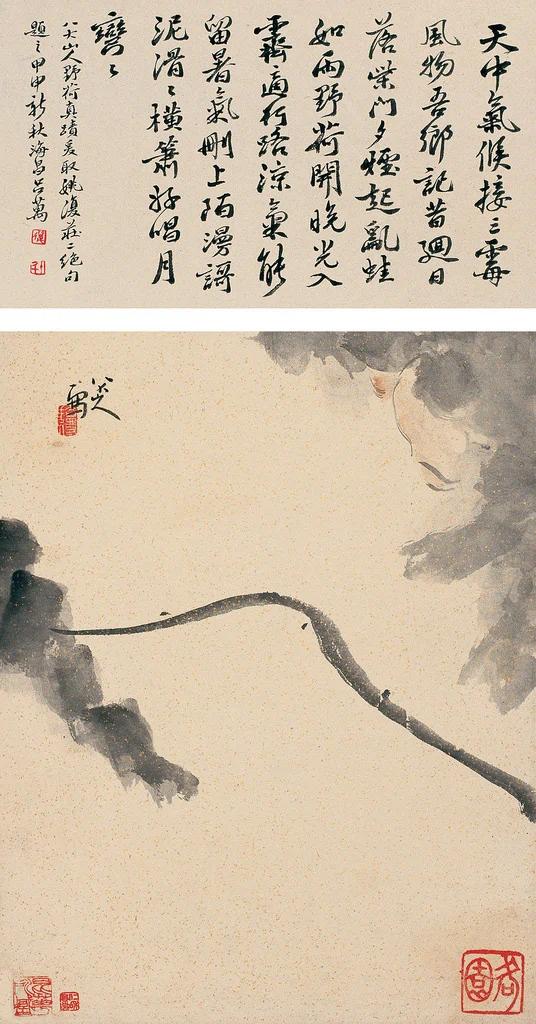 天中氣候接三霉
風物吾鄉記昔迴日
落柴門夕煙起亂蛙
如雨野荷開晚光入
適行路涼氣能
留暑氣刪上陌漫謌
泥滑〻橫簫好唱月
彎〻
八大山人野荷真蹟爰取姚復莊二絕句
題之甲申新秋海昌呂萬
八大山人
寫